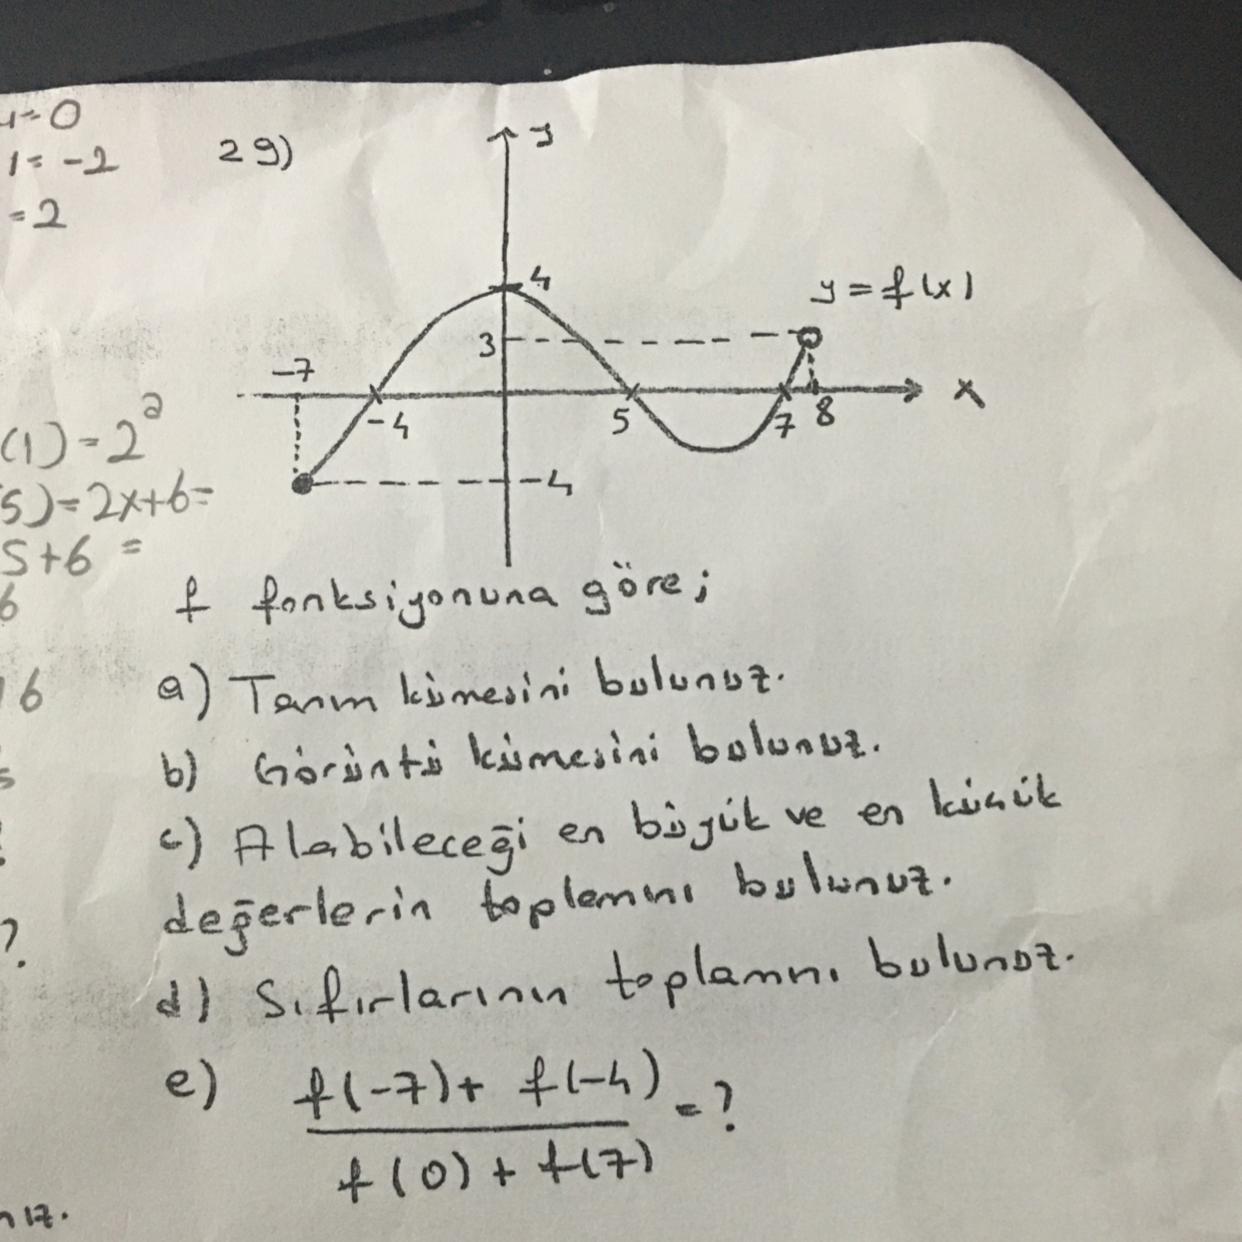 =0
1= -2
=2
29)
y
4
y=f(x)
3
-7
-4
5
7
8
x
-4
(1)=2²
5)=2x+6=
5+6 =
6
f fonksiyonuna göre;
16
a) Tanım kümesini bulunuz.
b) Görüntü kümesini bulunuz.
c) Alabileceği en büyük ve en küçük
değerlerin toplamını bulunuz.
?
d) Sıfırlarının toplamını bulunuz.
e) f(-7)+ f(-4)
= ?
f(0) + f(7)